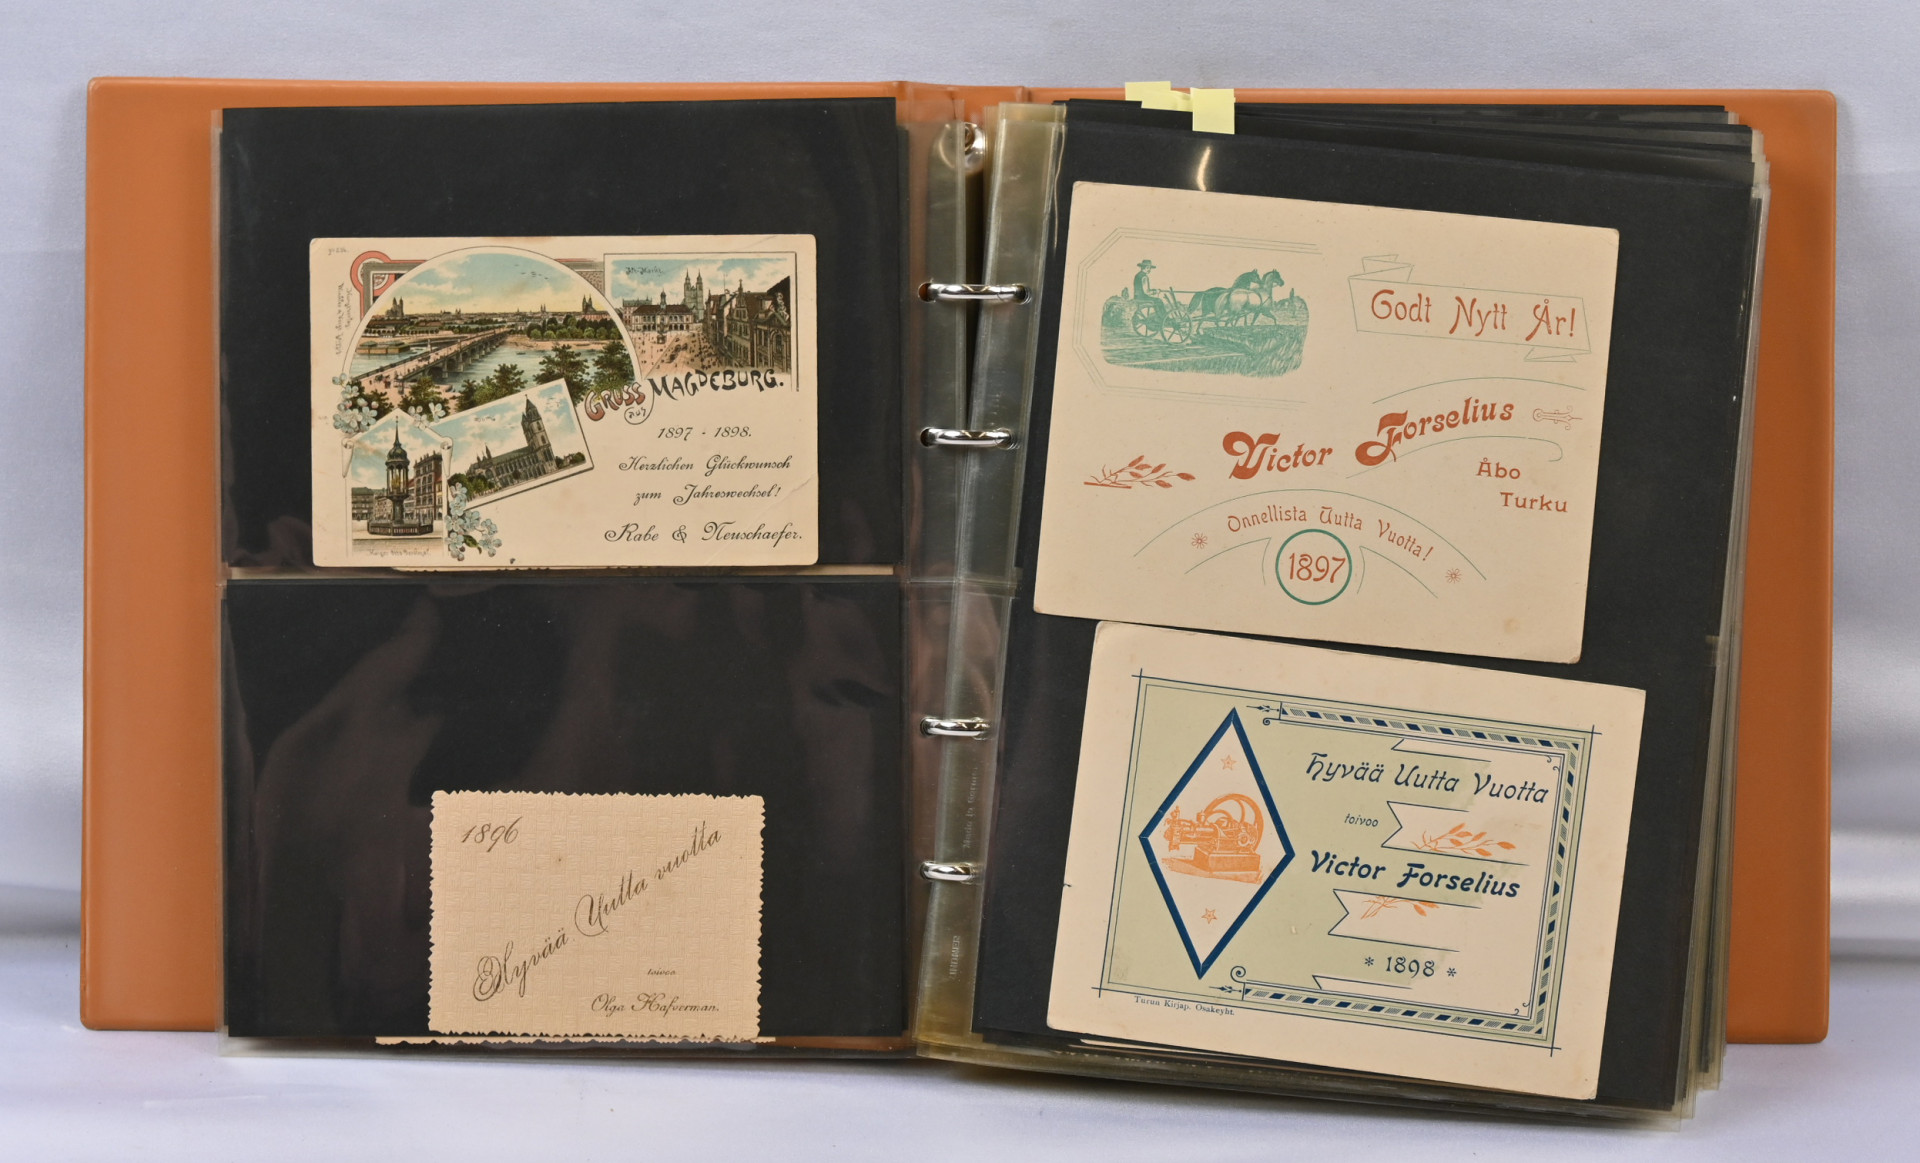 Alt-Markt
GRUSS
AUS
MAGDEBURG.
1897 - 1898.
Herzlichen Glückwunsch
zum Jahreswechsel!
Rabe & Neuschaefer.
1896
Hyvää Uutta vuotta
toivoo
Olga Hafverman.
Godt Nytt År!
Victor Forselius
Åbo
Turku
Onnellista Uutta Vuotta!
1897
Hyvää Uutta Vuotta
toivoo
Victor Forselius
* 1898 *
Turun Kirjap. Osakeyht.